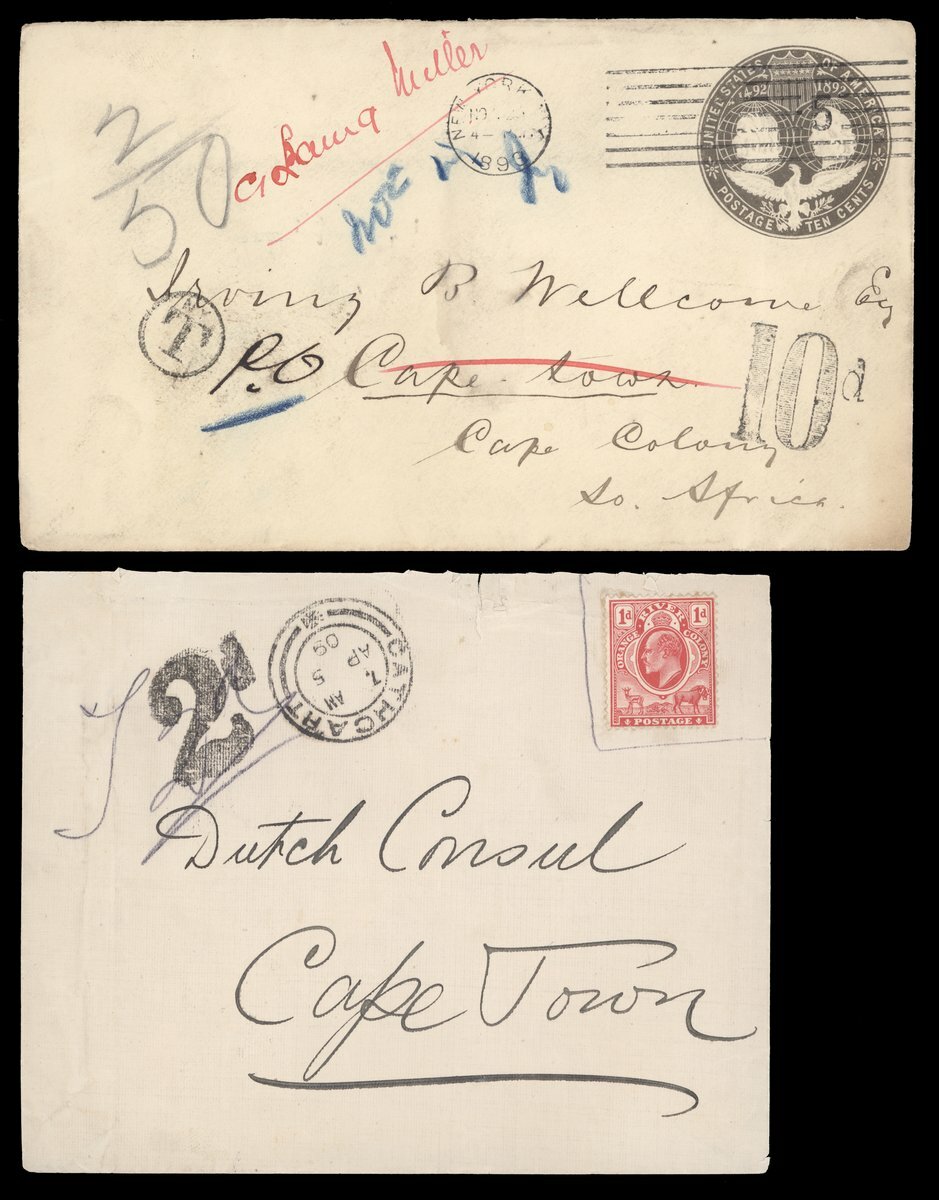 2/50
Miller
NEW YORK
4-
UNITED STATES OF AMERICA
1492 1892
5
POSTAGE TEN CENTS
T
Irving B. Wellcome Esq
P.O Cape Town.
10d
Cape Colony
So. Africa.
2d
CATHCART
7 AM
5
AP
09
1d 1d
ORANGE RIVER COLONY
POSTAGE
Dutch Consul
Cape Town